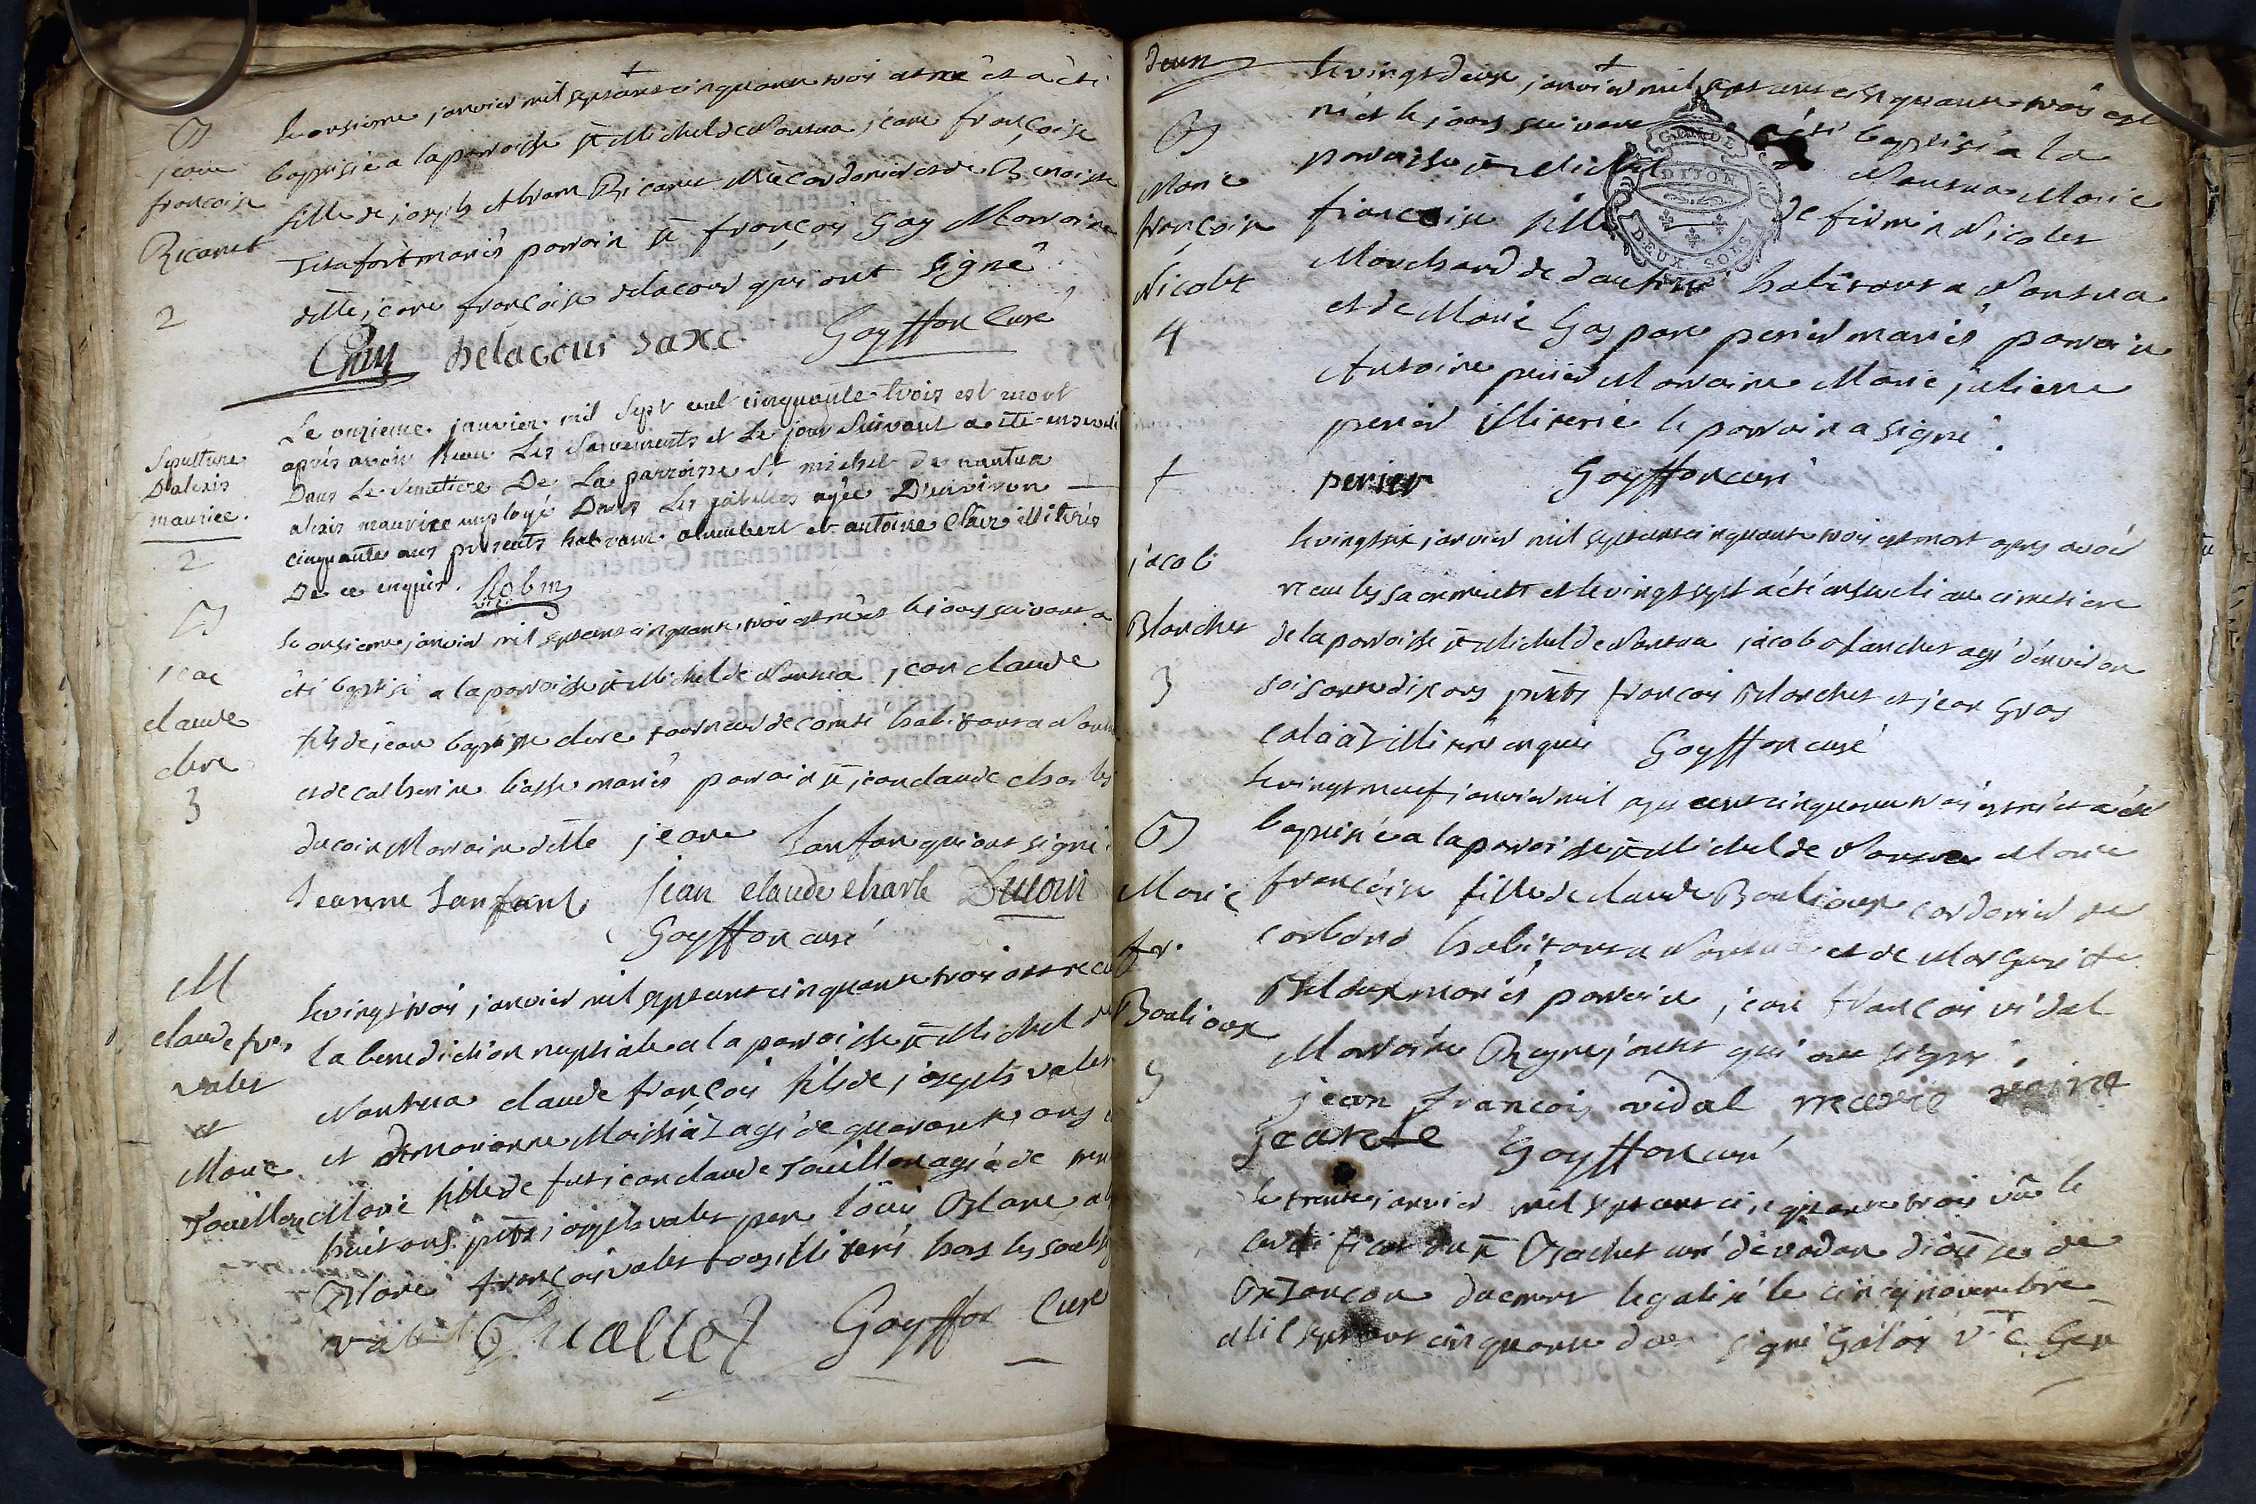 B
jeanne
françoise
Ricanet
2
le onsieme janvier mil sept cent cinquante trois est née et a été
baptisée a la paroisse st Michel de Nantua jeane françoise
fille de joseph Abram Ricanet Mtre cordonier et de Benoite
mariés parrain sr françois Gay Marraine
delle jeane françoise delacour qui ont signé
Gay delacour saxe Goyffon Curé
Sepulture
D'alexis
maurice.
2
Le onzieme janvier mil sept cent cinquante-trois est mort
après avoir Reçu Les Sacrements et Le jour Suivant a été enseveli
Dans Le Cimetiere De La parroisse St michel de nantua
alexis maurice employé Dans Les gabelles agée D'environ
cinquante ans presents antoine Clair illiterés
De ce enquis. Robin
vic.
B
jean
claude
clere
3
le onsieme janvier mil sept cent cinquante trois est né et le jour suivant a
été baptisé a la paroisse st Michel de Nantua jean claude
fils de jean baptiste clere tourneur de comté habitant a Nantua
et de catherine liasse mariés parrain sr jean claude charles
ducoin Marraine delle jeane Lanfan qui ont signé
Jeanne Lanfant jean claude charle Ducoin
Goyffon curé
M
claude frois
valet
et
Marie
Jouillon
le vingt trois janvier mil sept cent cinquante trois ont reçu
la benediction nuptiale a la paroisse st Michel de
Nantua claude françois fils de joseph valet
et de marianne Moissiaz agé de quarante ans
et Marie fille de fut jean claude Jouillon agée de
huit ans pnts joseph valet pere louis Blanc
Blanc françois valet tous illiterés hors les
Goyffon Curé
deux
B
Marie
françoise
Nicolet
4
le vingt deux janvier mil sept cent cinquante trois est
née et le jour suivant a été baptisée a la
paroisse st Michel de Nantua Marie
françoise fille de firmin Nicolet
Marchand de habitant a Nantua
et de Marie Gaspare perier mariés parrain
Antoine perier Marraine Marie juliene
perier illiterée le parrain a signé.
perier Goyffon curé
GEN DE
DIJON
DEUX SOLS
†
jacob
Blanchet
3
le vingt six janvier mil sept cent cinquante trois est mort apres avoir
reçu les sacrements et le vingt sept a été enseveli au cimetiere
de la paroisse st Michel de Nantua jacob blanchet agé d'environ
soisante dix ans pnts françois Blanchet et jean Gros
illiterés enquis Goyffon curé
B
Marie
fr.
Boulioux
5
le vingt neuf janvier mil sept cent cinquante trois est née et a été
baptisée a la paroisse st Michel de Nantua Marie
françoise fille de claude Boulioux cordonier de
habitant a Nantua et de Marguerite
mariés parrain jean françois vidal
Marraine Reyne jantet qui ont signé
jean françois vidal
jeantte Goyffon curé
le trente janvier mil sept cent cinquante trois vû le
certificat du sr Bachet curé de diocèse de
Bezançon duement legalisé le cinq novembre
Mil sept cent cinquante deux signé Galois V. G. Gen